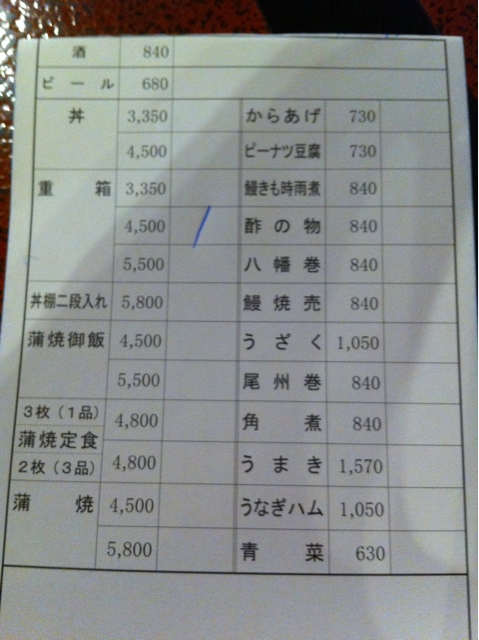 酒 840
ビール 680
丼 3,350 からあげ 730
4,500 ピーナツ豆腐 730
重箱 3,350 鰻きも時雨煮 840
4,500 酢の物 840
5,500 八幡巻 840
丼棚二段入れ 5,800 鰻焼売 840
蒲焼御飯 4,500 うざく 1,050
5,500 尾州巻 840
3枚(1品) 4,800 角煮 840
蒲焼定食
2枚(3品) 4,800 うまき 1,570
蒲焼 4,500 うなぎハム 1,050
5,800 青菜 630